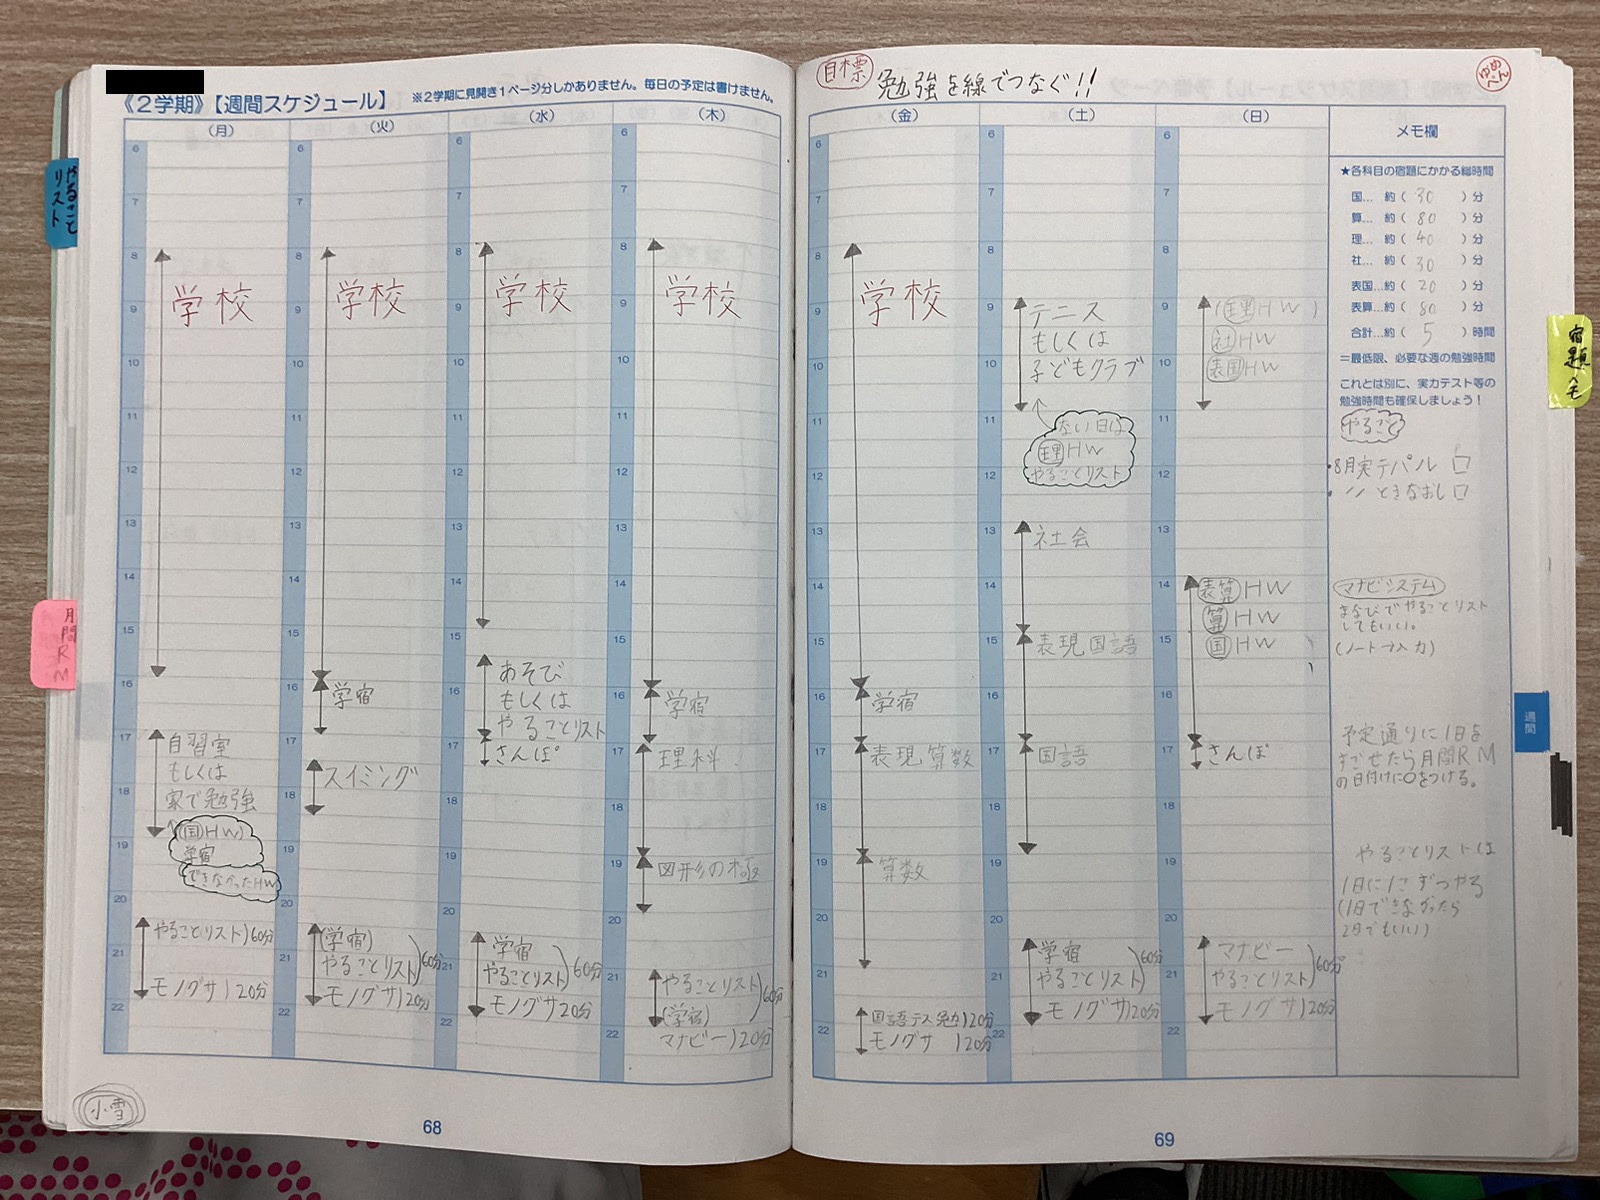 《2学期》【週間スケジュール】
※2学期に見開き1ページ分しかありません。毎日の予定は書けません。
目標 勉強を線でつなぐ!!
ゆめぺん
やること
リスト
月間RM
宿題メモ
週間
(月)
6
7
8
9
10
11
12
13
14
15
16
17
18
19
20
21
22
学校
自習室
もしくは
家で勉強
(国HW)
学宿
できなかったHW
やることリスト)60分
モノグサ)20分
(火)
6
7
8
9
10
11
12
13
14
15
16
17
18
19
20
21
22
学校
学宿
スイミング
(学宿)
やることリスト)60分
モノグサ)20分
(水)
6
7
8
9
10
11
12
13
14
15
16
17
18
19
20
21
22
学校
あそび
もしくは
やることリスト
さんぽ
学宿
やることリスト)60分
モノグサ20分
(木)
6
7
8
9
10
11
12
13
14
15
16
17
18
19
20
21
22
学校
学宿
理科
図形の極
やることリスト)60分
(学宿)
マナビー)20分
(金)
6
7
8
9
10
11
12
13
14
15
16
17
18
19
20
21
22
学校
学宿
表現算数
算数
国語テス勉)20分
モノグサ)20分
(土)
6
7
8
9
10
11
12
13
14
15
16
17
18
19
20
21
22
テニス
もしくは
子どもクラブ
ない日は
理HW
やることリスト
社会
表現国語
国語
学宿
やることリスト)60分
モノグサ)20分
(日)
6
7
8
9
10
11
12
13
14
15
16
17
18
19
20
21
22
(理HW)
社HW
表国HW
表算HW
算HW
国HW
さんぽ
マナビー
やることリスト)60分
モノグサ)20分
メモ欄
★各科目の宿題にかかる総時間
国…約(30)分
算…約(80)分
理…約(40)分
社…約(30)分
表国…約(20)分
表算…約(80)分
合計…約(5)時間
=最低限、必要な週の勉強時間
これとは別に、実力テスト等の
勉強時間も確保しましょう!
やること
・8月実テパル □
・〃 ときなおし□
マナビシステム
まなびでやることリスト
してもいい。
(ノート→入力)
予定通りに1日を
すごせたら月間RM
の日付けに○をつける。
やることリストは
1日に1こずつやる
(1日できなかったら
2日でもいい)
小雪
68
69